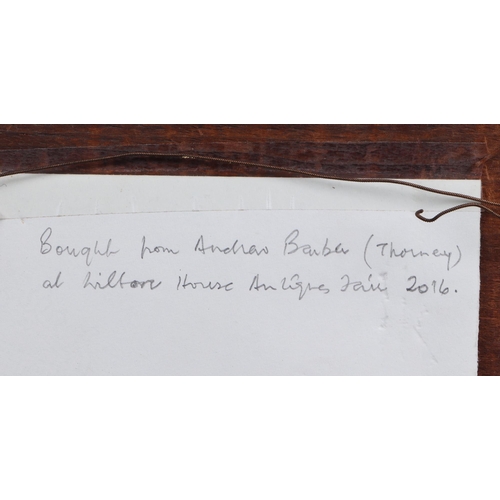 Bought from Andrew Barber (Thorney)
at Wilton House Antiques Fair 2016.